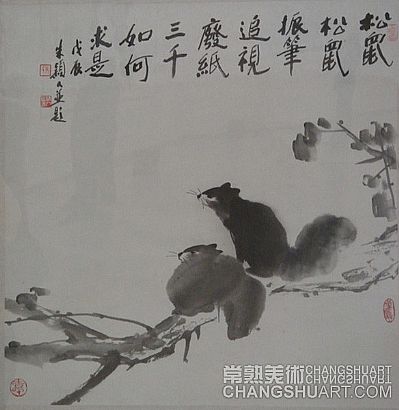 松鼠
松鼠
振筆
追視
廢紙
三千
如何
求是
戊辰
朱頴人並題
常熟美術 CHANGSHUART.COM
CHANGSHUART.COM